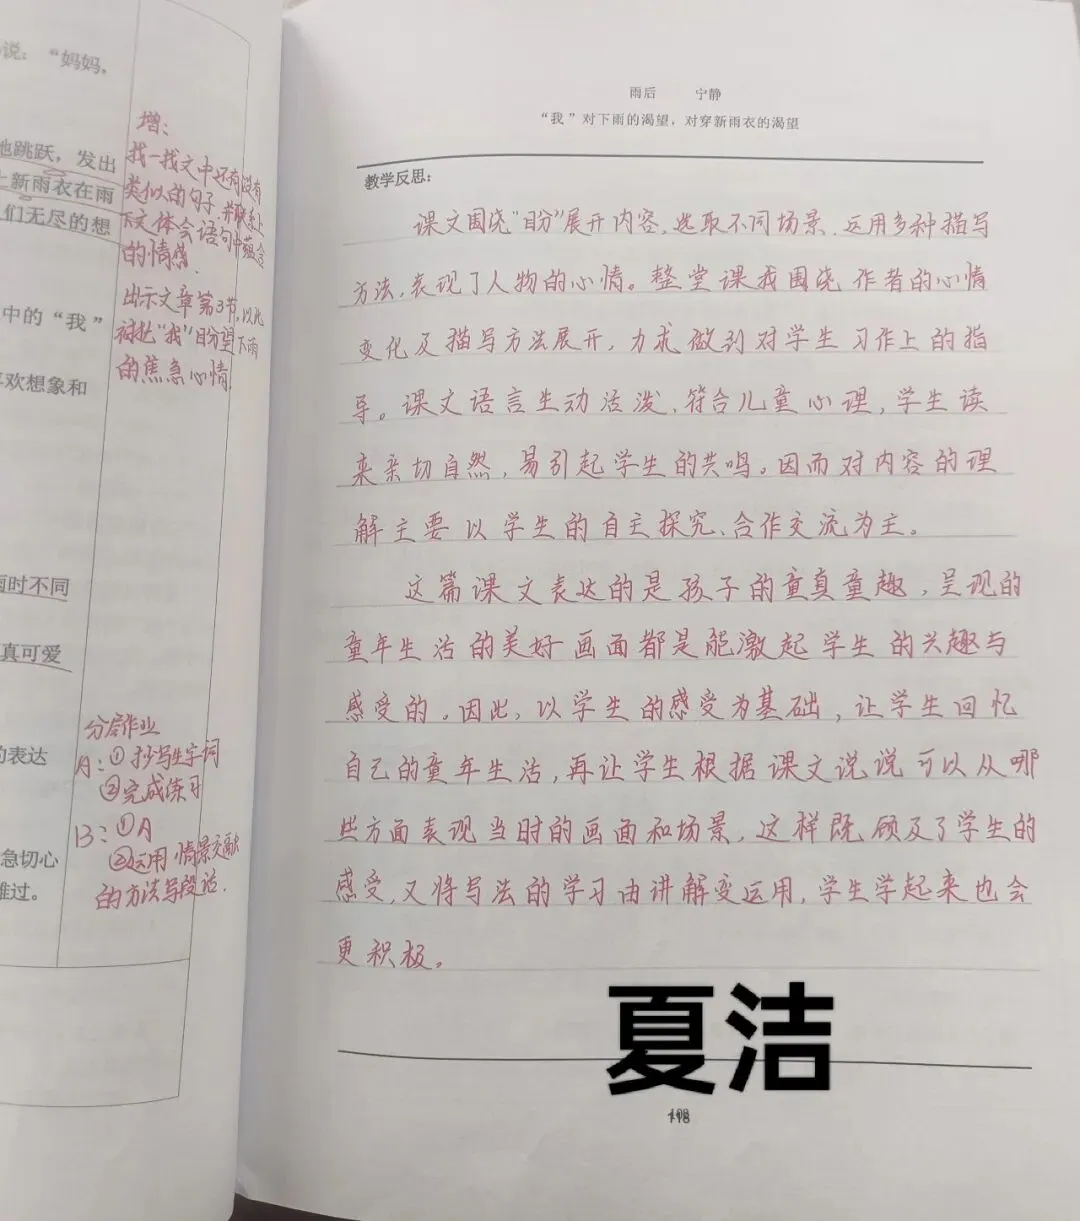 说：“妈妈，
地跳跃，发出
上新雨衣在雨
人们无尽的想
中的“我”
喜欢想象和
雨时不同
真可爱
的表达
急切心
难过。
增：
找一找文中还有没有
类似的句子，并联系上
下文体会语句中蕴含
的情感．
出示文章第3节，以此
衬托“我”盼望下雨
的焦急心情．
分层作业
A：①抄写生字词
②完成练习
B：①A
②运用情景交融
的方法写段话．
雨后 宁静
“我”对下雨的渴望，对穿新雨衣的渴望
教学反思：
课文围绕“盼”展开内容，选取不同场景．运用多种描写
方法，表现了人物的心情。整堂课我围绕作者的心情
变化及描写方法展开，力求做到对学生习作上的指
导。课文语言生动活泼、符合儿童心理，学生读
来亲切自然，易引起学生的共鸣。因而对内容的理
解主要以学生的自主探究、合作交流为主。
这篇课文表达的是孩子的童真童趣，呈现的
童年生活的美好画面都是能激起学生的兴趣与
感受的。因此，以学生的感受为基础，让学生回忆
自己的童年生活，再让学生根据课文说说可以从哪
些方面表现当时的画面和场景，这样既顾及了学生的
感受，又将写法的学习由讲解变运用，学生学起来也会
更积极。
夏洁